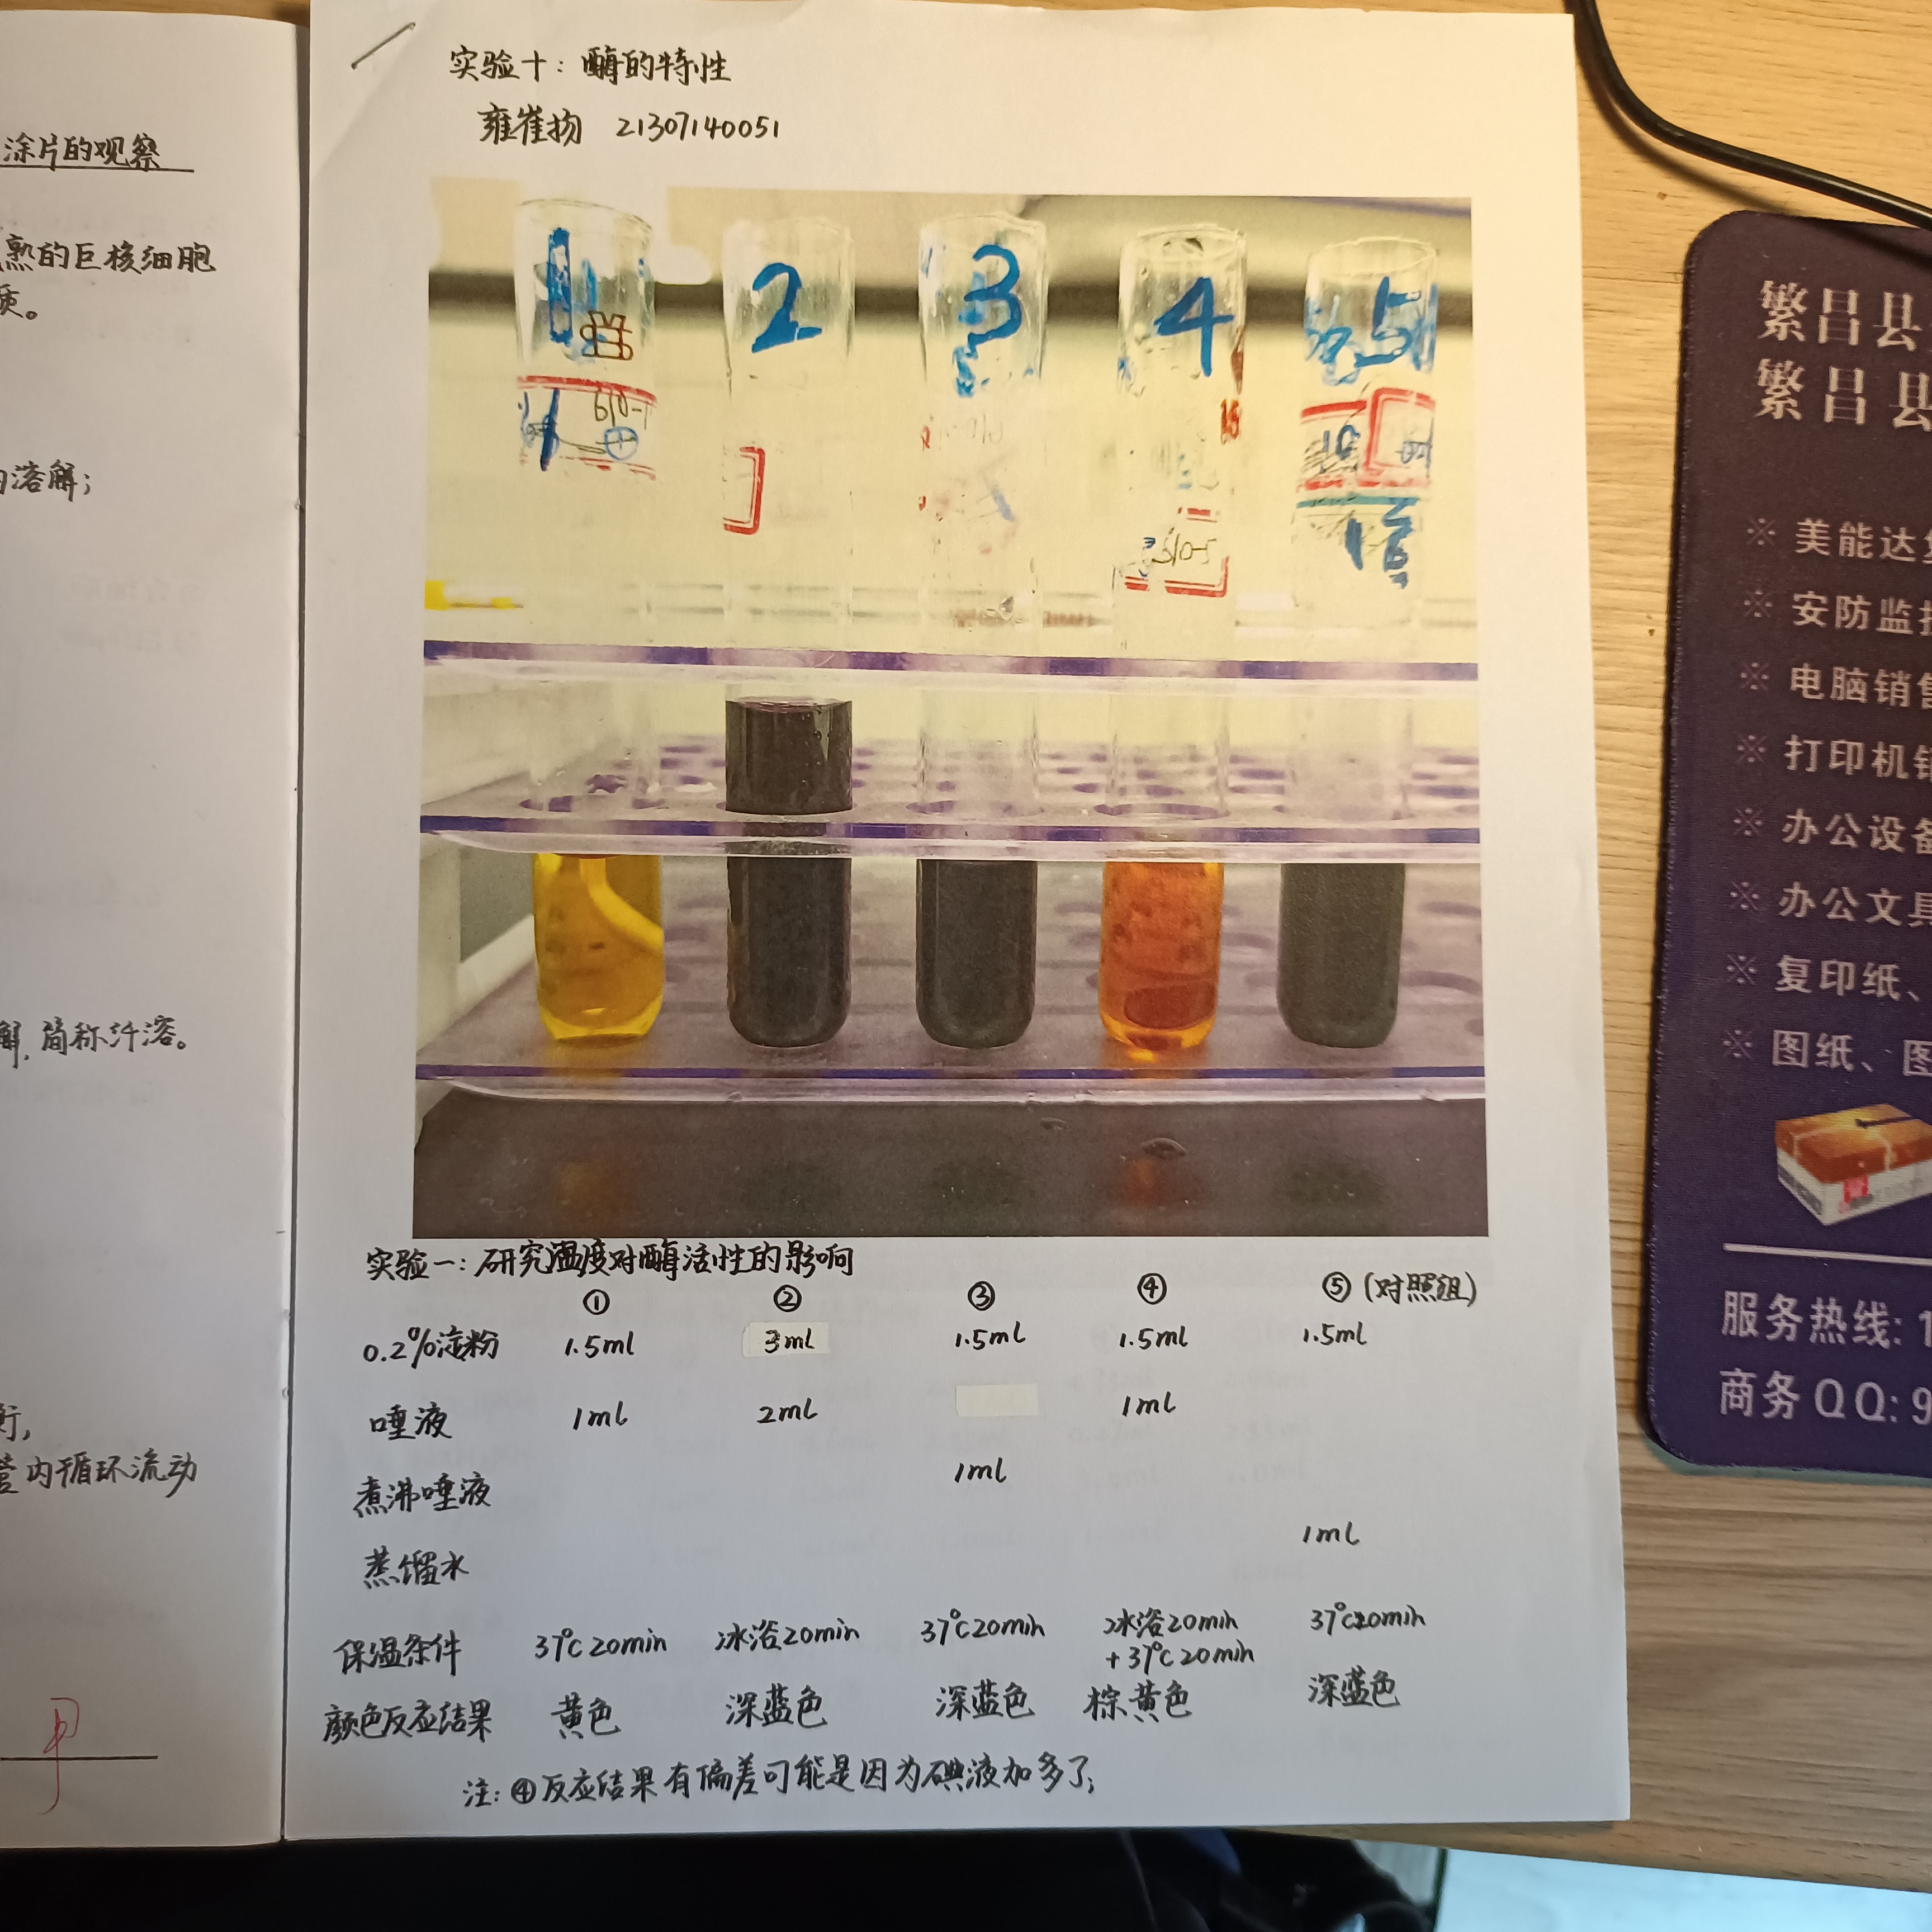 涂片的观察
熟的巨核细胞
质。
溶解;
解,简称纤溶。
衡,
管内循环流动
实验十:酶的特性
雍崔扬 21307140051
1 2 3 4 5
610-1
实验一:研究温度对酶活性的影响
① ② ③ ④ ⑤(对照组)
0.2%淀粉 1.5ml 3ml 1.5ml 1.5ml 1.5ml
唾液 1ml 2ml 1ml
煮沸唾液 1ml
蒸馏水 1ml
保温条件 37℃20min 冰浴20min 37℃20min 冰浴20min 37℃20min
+37℃20min
颜色反应结果 黄色 深蓝色 深蓝色 棕黄色 深蓝色
注:④反应结果有偏差可能是因为碘液加多了;
繁昌县
繁昌县
※ 美能达
※ 安防监
※ 电脑销售
※ 打印机
※ 办公设备
※ 办公文具
※ 复印纸、
※ 图纸、图
服务热线:1
商务QQ:9